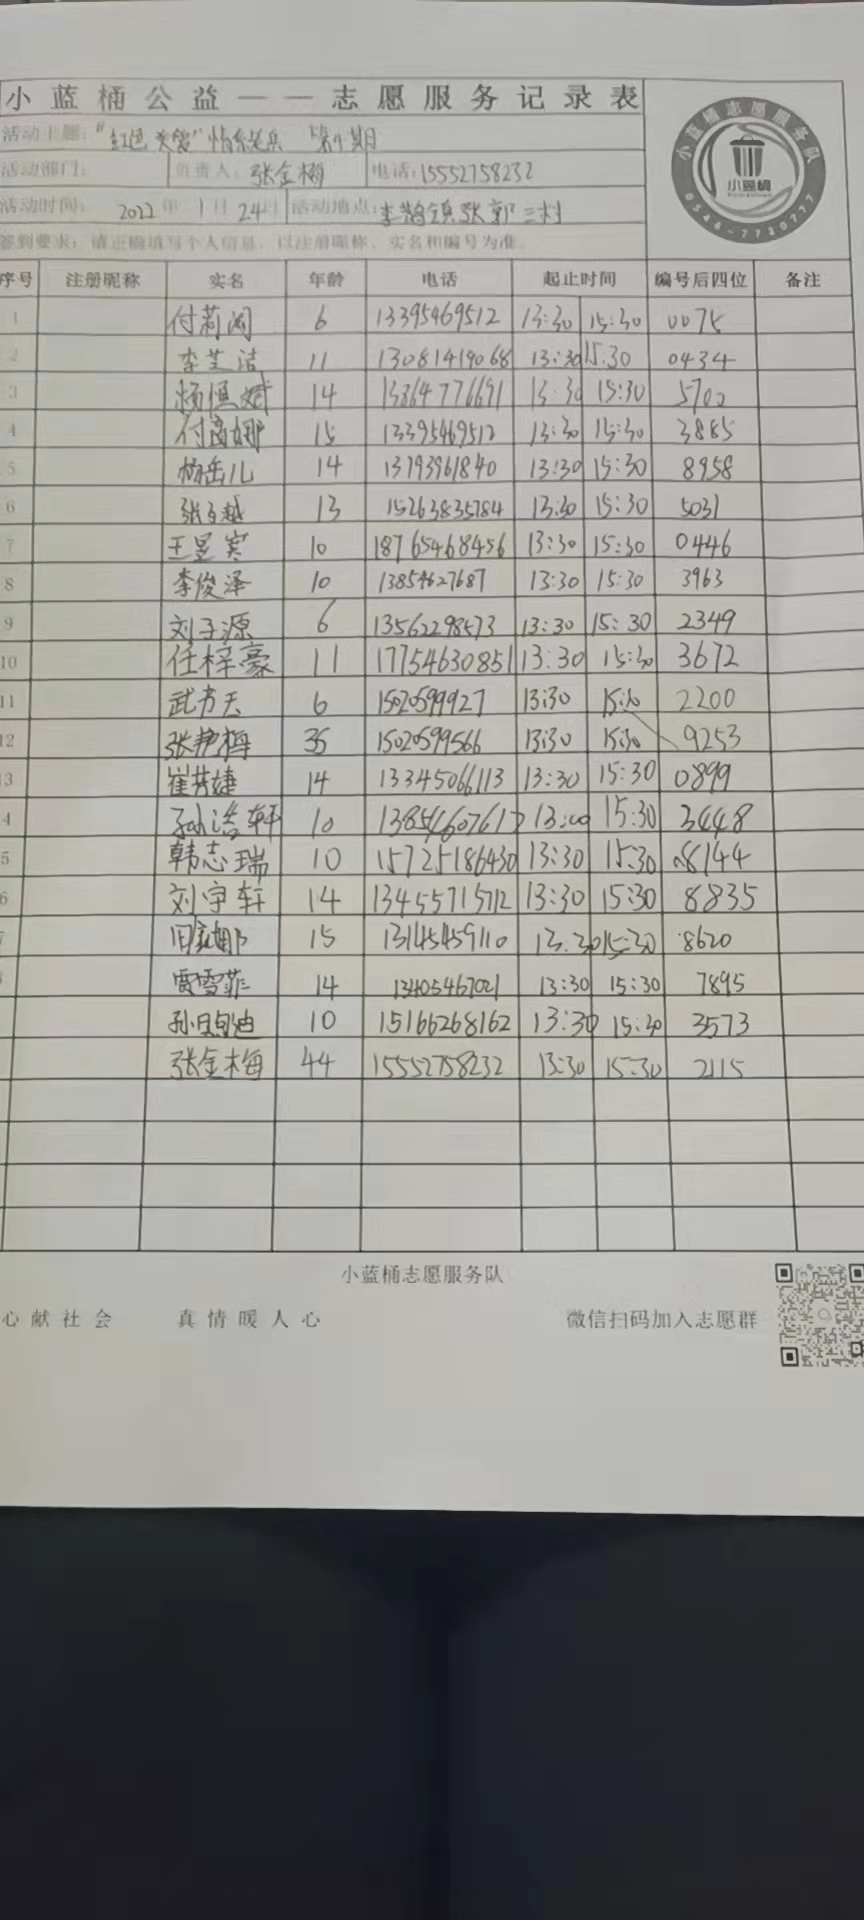 小蓝桶公益——志愿服务记录表
活动主题："红色 情系老兵 第 期
活动部门: 负责人: 张金梅 电话:15552758232
活动时间: 2022年 1月 24日 活动地点: 李鹊镇张郭三村
签到要求: 请正确填写个人信息, 以注册昵称、实名和编号为准。
小蓝桶志愿服务队
小蓝桶
0546-7720777
序号 注册昵称 实名 年龄 电话 起止时间 编号后四位 备注
1 付莉 6 13395469512 13:30 15:30 0075
2 李芝洁 11 13081419068 13:30 15:30 0434
3 杨恒斌 14 13864776691 13:30 15:30 5702
4 付 娜 15 13395469512 13:30 15:30 3885
5 杨岳儿 14 13793961840 13:30 15:30 8958
6 张 越 13 15263835784 13:30 15:30 5031
7 王昱宾 10 18765468456 13:30 15:30 0446
8 李俊泽 10 13854627687 13:30 15:30 3963
9 刘子源 6 13562298573 13:30 15:30 2349
10 任梓豪 11 17754630851 13:30 15:30 3672
11 武 天 6 15020599927 13:30 15:30 2200
12 张艳梅 35 15020599566 13:30 15:30 9253
3 崔芳婕 14 13345066113 13:30 15:30 0899
4 孙浩轩 10 13854607617 13:00 15:30 3448
5 韩志瑞 10 15725186430 13:30 15:30 8144
6 刘宇轩 14 13455715712 13:30 15:30 8835
7 田 娜 15 13145459110 13:30 15:30 8620
贾雪菲 14 13405467021 13:30 15:30 7895
孙 迪 10 15166268162 13:30 15:30 3573
张金梅 44 15552758232 13:30 15:30 2115
小蓝桶志愿服务队
心献社会 真情暖人心 微信扫码加入志愿群